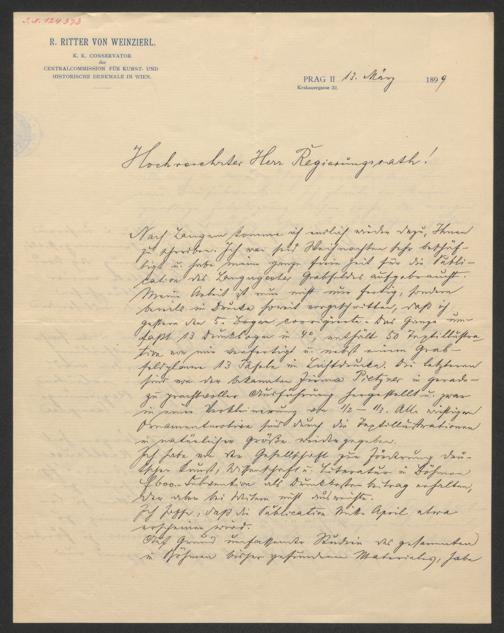 I.N. 124373
R. RITTER VON WEINZIERL.
K. K. CONSERVATOR
der
CENTRALCOMMISSION FÜR KUNST- UND
HISTORISCHE DENKMALE IN WIEN.
PRAG II 13. März 1899
Krakauergasse
Hochverehrter Herr Regierungsrath!
Nach Langem komme ich endlich wieder dazu, Ihnen
zu schreiben. Ich war seit Weihnachten sehr beschäf-
tigt u. habe meine ganze freie Zeit für die Publi-
cation des Langugester Grabfeldes aufgebraucht.
Meine Arbeit ist nun nicht nur fertig, sondern
bereits im Drucke soweit vorgeschritten, daß ich
gestern den 5. Bogen corrigirte. Das Ganze um-
faßt 13 Druckbogen in 4° enthält 50 Textillustra
tionen von mir verfertigt u. nebst einem Grab-
feldplane 13 Tafeln in Lichtdrucke. Die letzteren
sind von der bekannten Firma Pietzner in gerade-
zu prachtvoller Ausführung hergestellt u. zwar
in einer Verkleinerung von 1/2 – 1/3. Alle wichtigen
Ornamentmotive sind durch die Textillustrationen
in natürlicher Größe wiedergegeben.
Ich habe von der Gesellschaft zur Förderung deu-
tscher Kunst, Wissenschaft u. Literatur in Böhmen
600 Subvention als Druckkostenbeitrag erhalten,
der aber bei Weitem nicht ausreicht.
Ich hoffe, daß die Publication Mitte April etwa
erscheinen wird.
Auf Grund umfassender Studien des gesammten
in Böhmen bisher gefundenen Materiales, habe